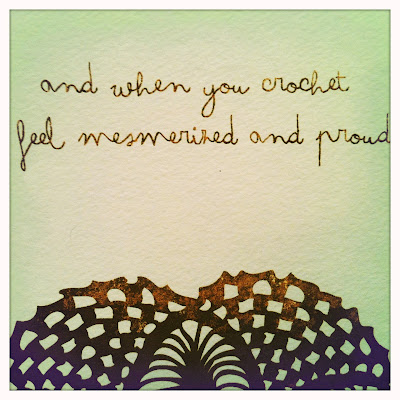 and when you crochet
feel mesmerized and proud